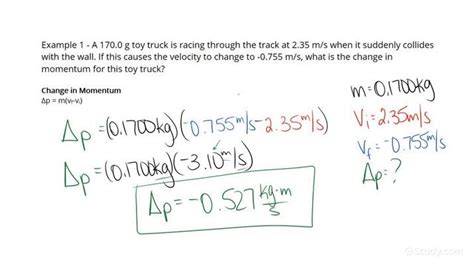 Example 1 - A 170.0 g toy truck is racing through the track at 2.35 m/s when it suddenly collides
with the wall. If this causes the velocity to change to -0.755 m/s, what is the change in
momentum for this toy truck?
Change in Momentum
Δp = m(vf-vi)
Δp = (0.1700kg)(-0.755m/s-2.35m/s)
Δp = (0.1700kg)(-3.10m/s)
Δp = -0.527 kg·m/s
m = 0.1700kg
Vi = 2.35m/s
Vf = -0.755m/s
Δp = ?
Study.com